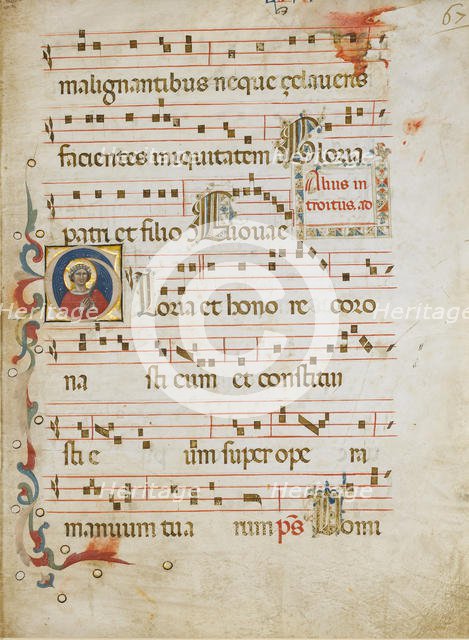 67
malignantibus neque çelaveris
facientes iniquitatem Gloria
Alius in
troitus. ad
patri et filio Euouae
Gloria et hono re coro
na sti eum et constitui
sti e um super ope ra
manuum tua rum ps Domi
Heritage
Heritage
Heritage
Heritage
Heritage
Heritage